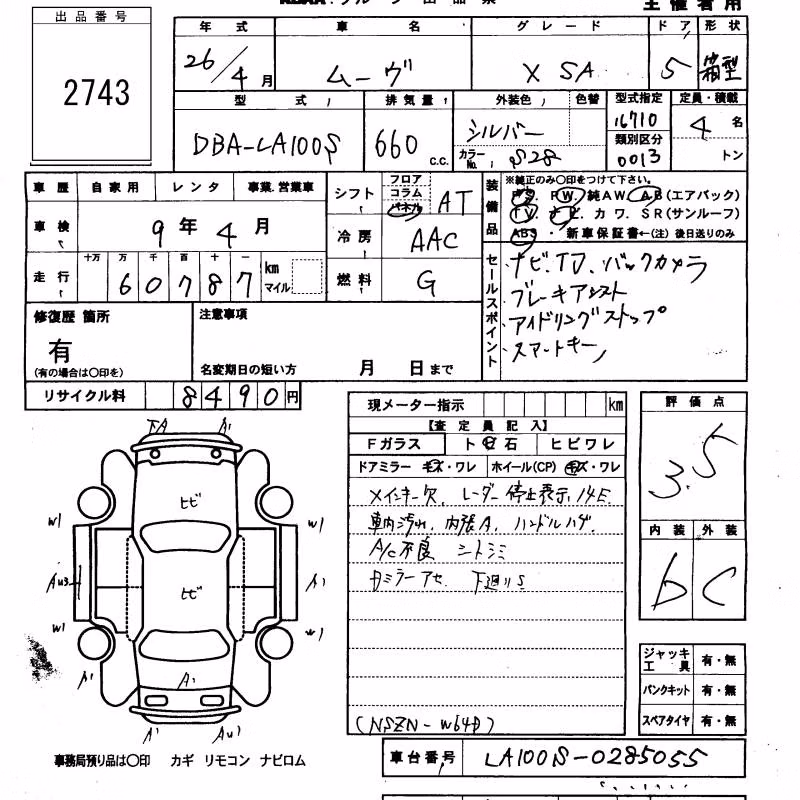 出品番号
2743
主催者用
年式 車名 グレード ドア 形状
26/4月 ムーヴ X SA 5 箱型
型式 排気量 外装色 色替 型式指定 定員・積載
DBA-LA100S 660 c.c. シルバー 16710 4名
カラーNo. S28 類別区分 0013 トン
車歴 自家用 レンタ 事業.営業車
車検 9年4月
走行 十万 万 千 百 十 一 km マイル
60787
シフト フロア コラム パネル AT
冷房 AAC
燃料 G
装備品
※純正のみ○印をつけて下さい。
PS. PW. 純AW. AB(エアバック)
TV. ナビ. カワ. SR(サンルーフ)
ABS ・ 新車保証書←(注)後日送りのみ
セールスポイント
ナビ、TV、バックカメラ
ブレーキアシスト
アイドリングストップ
スマートキー
修復歴 箇所
有
(有の場合は○印を)
注意事項
名変期日の短い方 月 日まで
リサイクル料 8490円
現メーター指示 km
【査定員記入】
Fガラス ト 石 ヒビワレ
ドアミラー キズ・ワレ ホイール(CP) キズ・ワレ
メインキー欠、レーダー 停止表示、
車内汚れ、内張A、ハンドルハゲ、
A/C不良 シートシミ
ミラーアセ 下廻りS
(NSZN-W64D)
評価点
3.5
内装 外装
b C
ジャッキ工具 有・無
パンクキット 有・無
スペアタイヤ 有・無
下A A1
ヒビ
W1 W1
AU3 ヒビ A1
W1 W1
A1 A1 A1
A1 AU1
事務局預り品は○印 カギ リモコン ナビロム
車台番号 LA100S-0285055